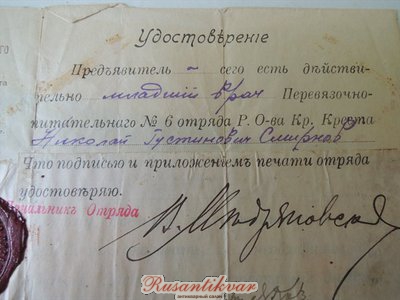 Удостовѣреніе
Предъявитель – сего есть дѣйстви-
тельно младшій врач Перевязочно-
питательнаго № 6 отряда Р. О-ва Кр. Креста
Николай Густинович Смирнов
Что подписью и приложеніем печати отряда
удостовѣряю.
Начальник Отряда
Rusantikvar
антикварный салон